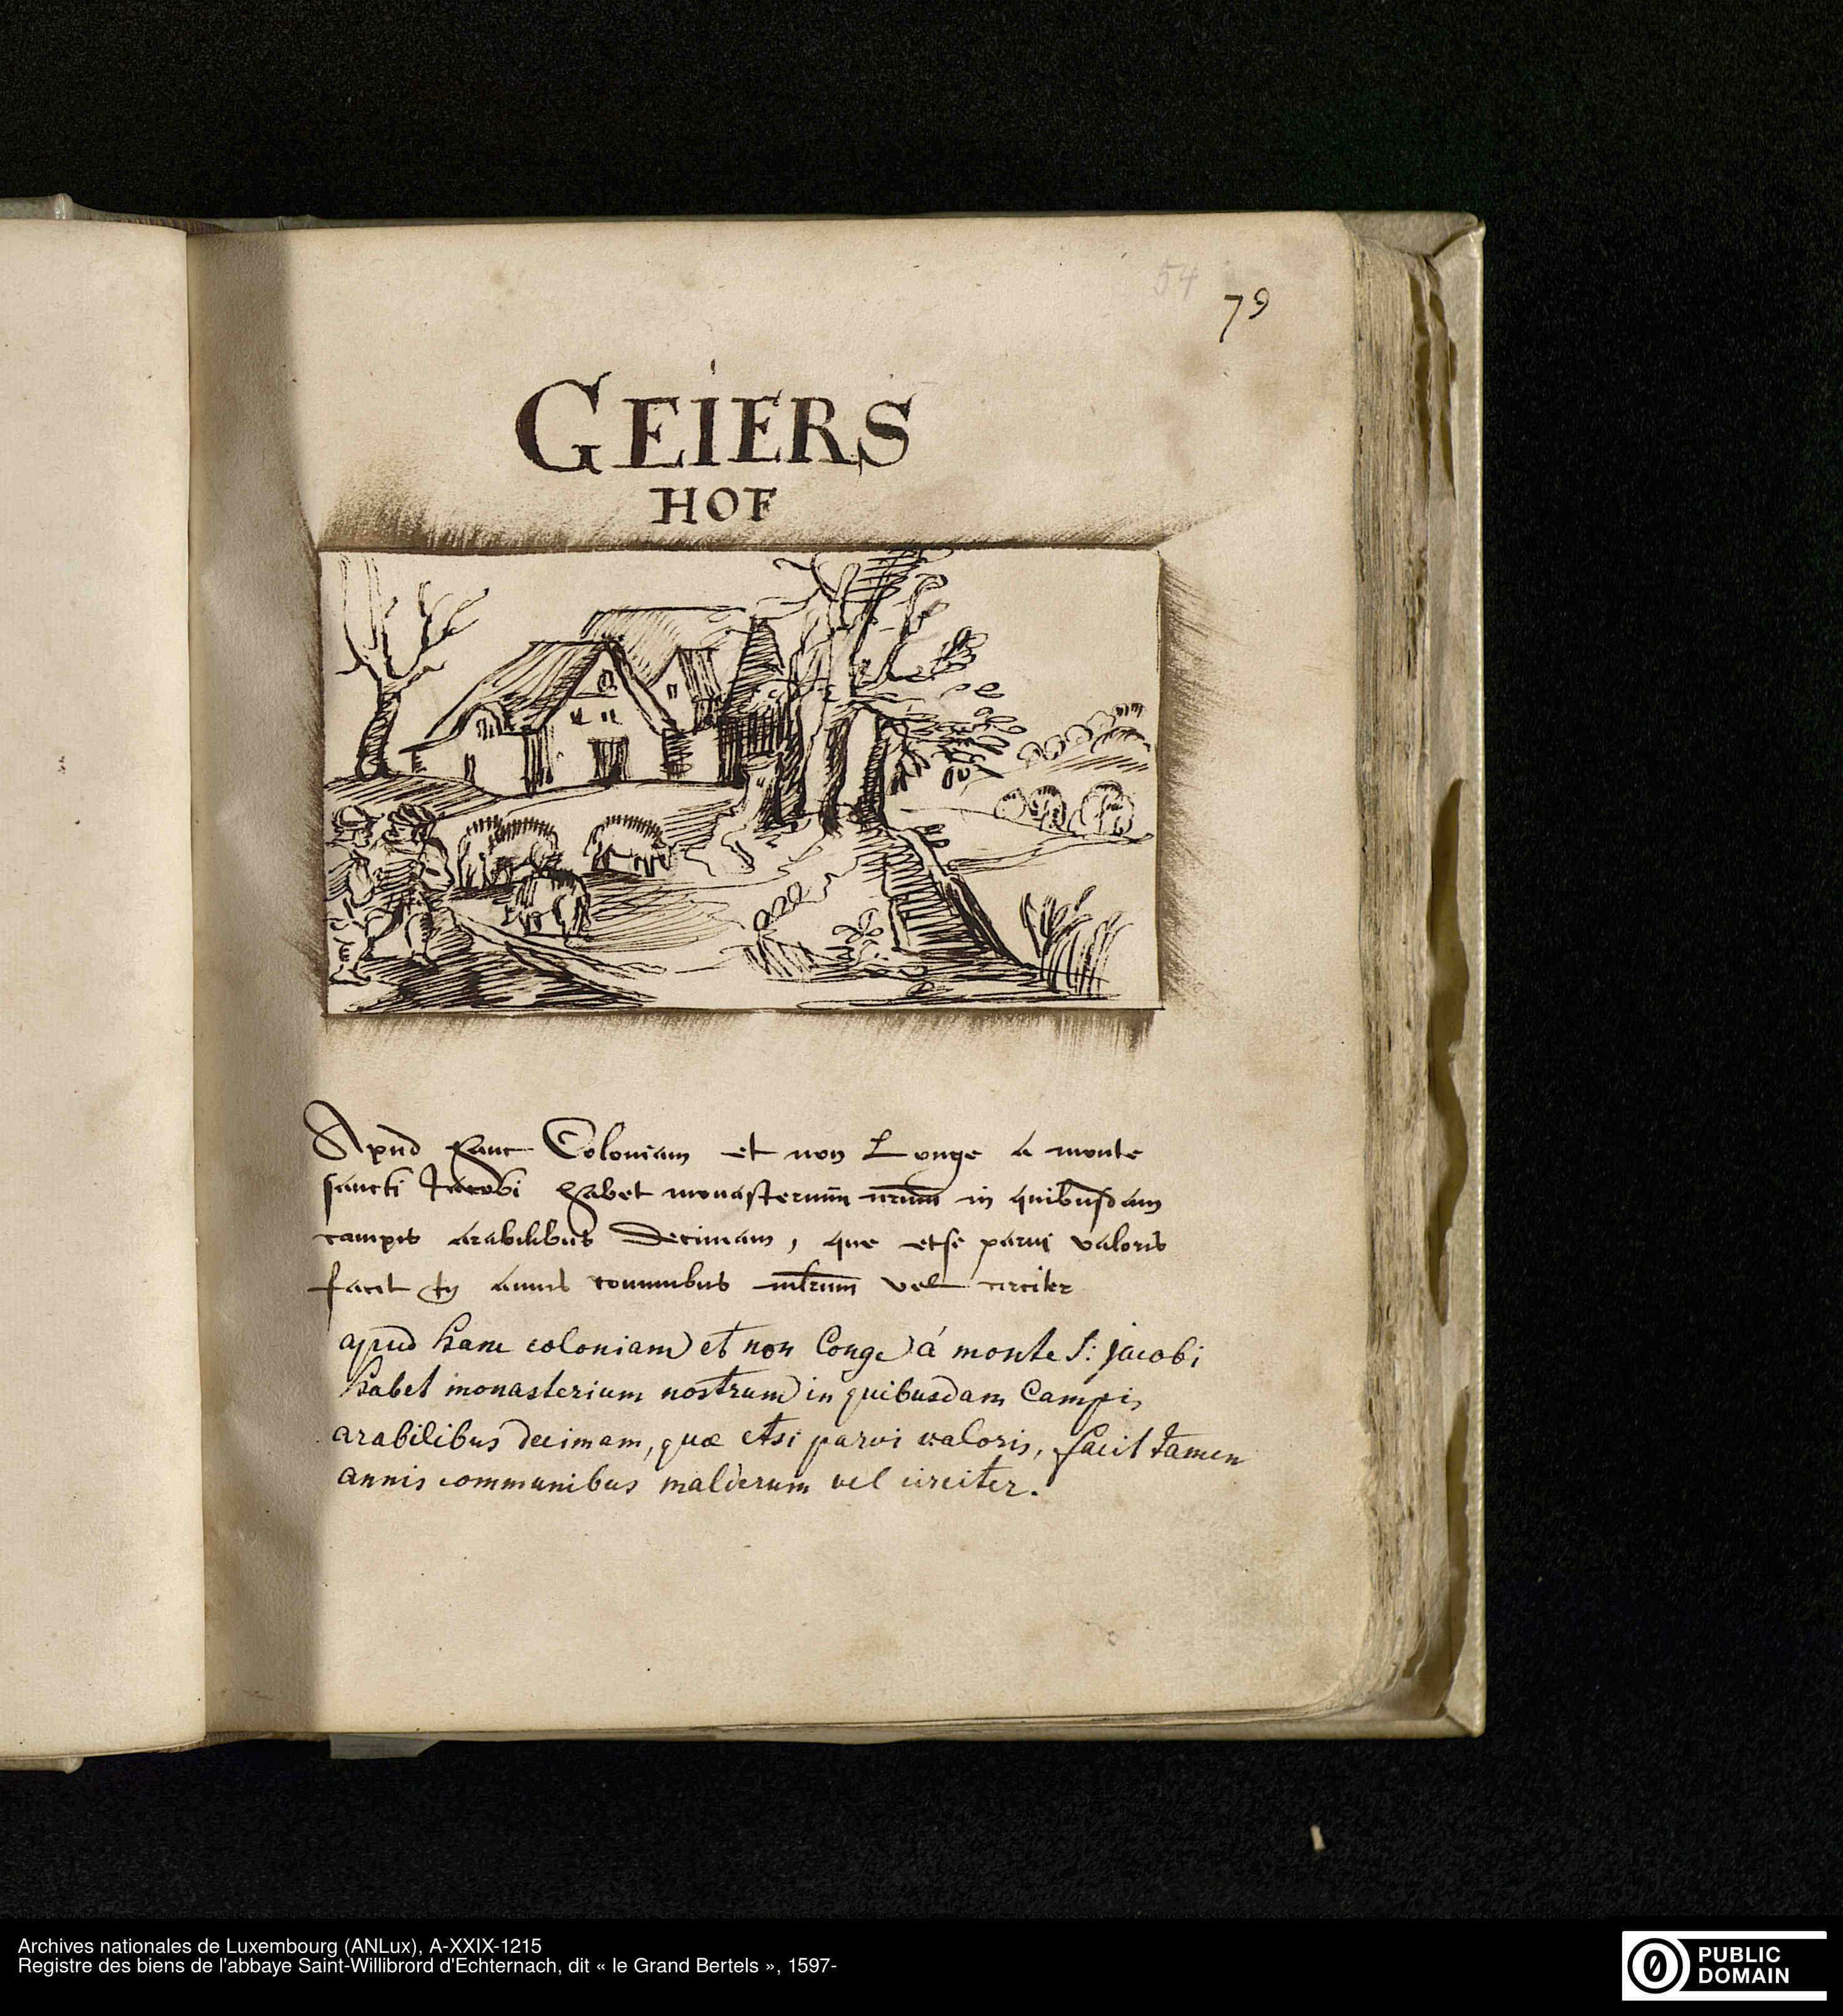 54
79
GEIERS
HOF
Apud hanc Coloniam et non Longe a monte
sancti Jacobi habet monasterium nrum in quibusdam
campis arabilibus Decimam, que etsi parvi valoris
facit tn annis communibus mldrum vel circiter
apud hanc coloniam et non longe á monte S: jacobi
habet monasterium nostrum in quibusdam Campis
arabilibus decimam, quæ etsi parvi valoris, facit tamen
annis communibus malderum vel circiter.
Archives nationales de Luxembourg (ANLux), A-XXIX-1215
Registre des biens de l'abbaye Saint-Willibrord d'Echternach, dit « le Grand Bertels », 1597-
PUBLIC
DOMAIN